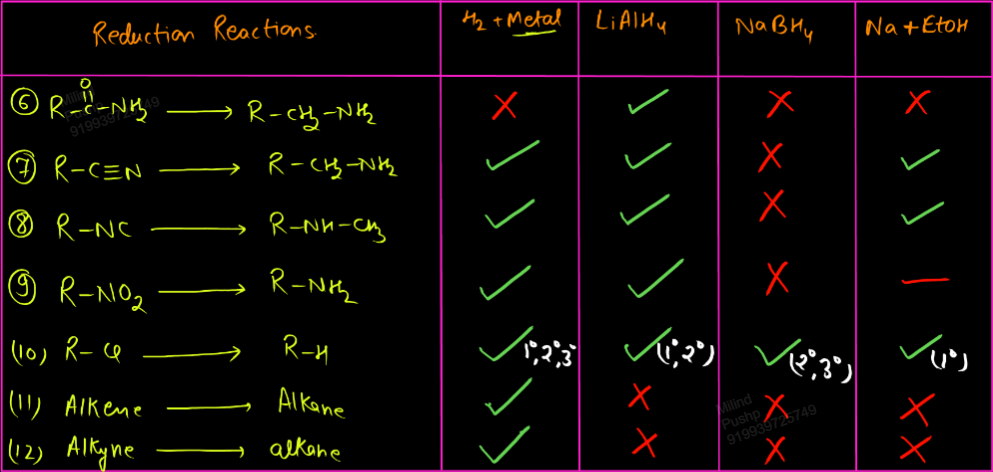 Reduction Reactions H₂ + Metal LiAlH₄ NaBH₄ Na + EtOH
⑥ R-C(=O)-NH₂ ⟶ R-CH₂-NH₂ ✗ ✓ ✗ ✗
⑦ R-C≡N ⟶ R-CH₂-NH₂ ✓ ✓ ✗ ✓
⑧ R-NC ⟶ R-NH-CH₃ ✓ ✓ ✗ ✓
⑨ R-NO₂ ⟶ R-NH₂ ✓ ✓ ✗ —
(10) R-Cl ⟶ R-H ✓ 1°,2°,3° ✓ (1°,2°) ✓ (2°,3°) ✓ (1°)
(11) Alkene ⟶ Alkane ✓ ✗ ✗ ✗
(12) Alkyne ⟶ alkane ✓ ✗ ✗ ✗
Milind
Pushp
919939725749
Milind
Pushp
919939725749